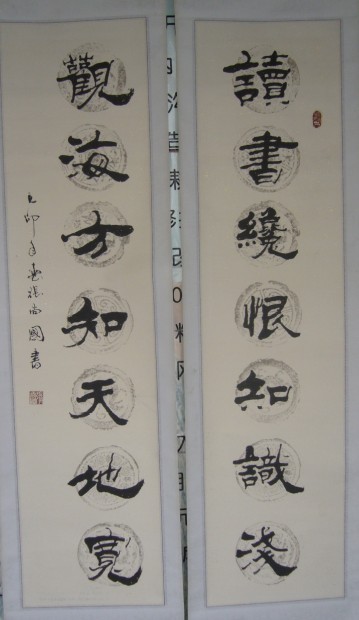 讀書纔恨知識淺
觀海方知天地寬
己卯年 張尚國書